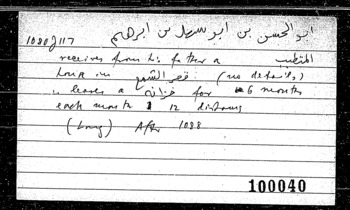 ابو الحسن بن ابو سهل بن ابرهيم
1088 J 117 المتطبب
receives from his father a
house in قصر الشمع (no details)
leases a خزانة for 6 months
each month 12 dirhams
(Long) After 1088
100040